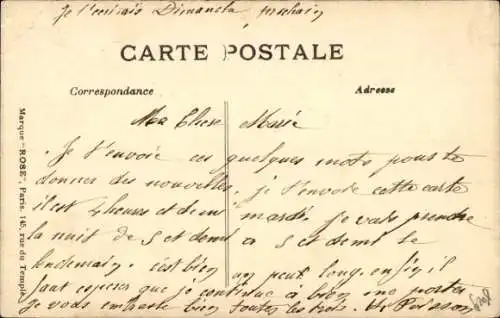 Je t'écrirais Dimanche prochain
CARTE POSTALE
Correspondance
Adresse
Marque "ROSE", Paris, 145, rue du Temple
Ma Chere Marie
Je t'envoie ces quelques mots pour te
donner des nouvelles. je t'envoie cette carte
il est 4 heures et demi mardi. je vais prendre
la nuit de 5 et demi a 5 et demi le
lendemain. c'est bien un peut long. enfin il
faut esperer que je continue à bien me porter
Je vous embrasse bien toutes les trois. Poisson